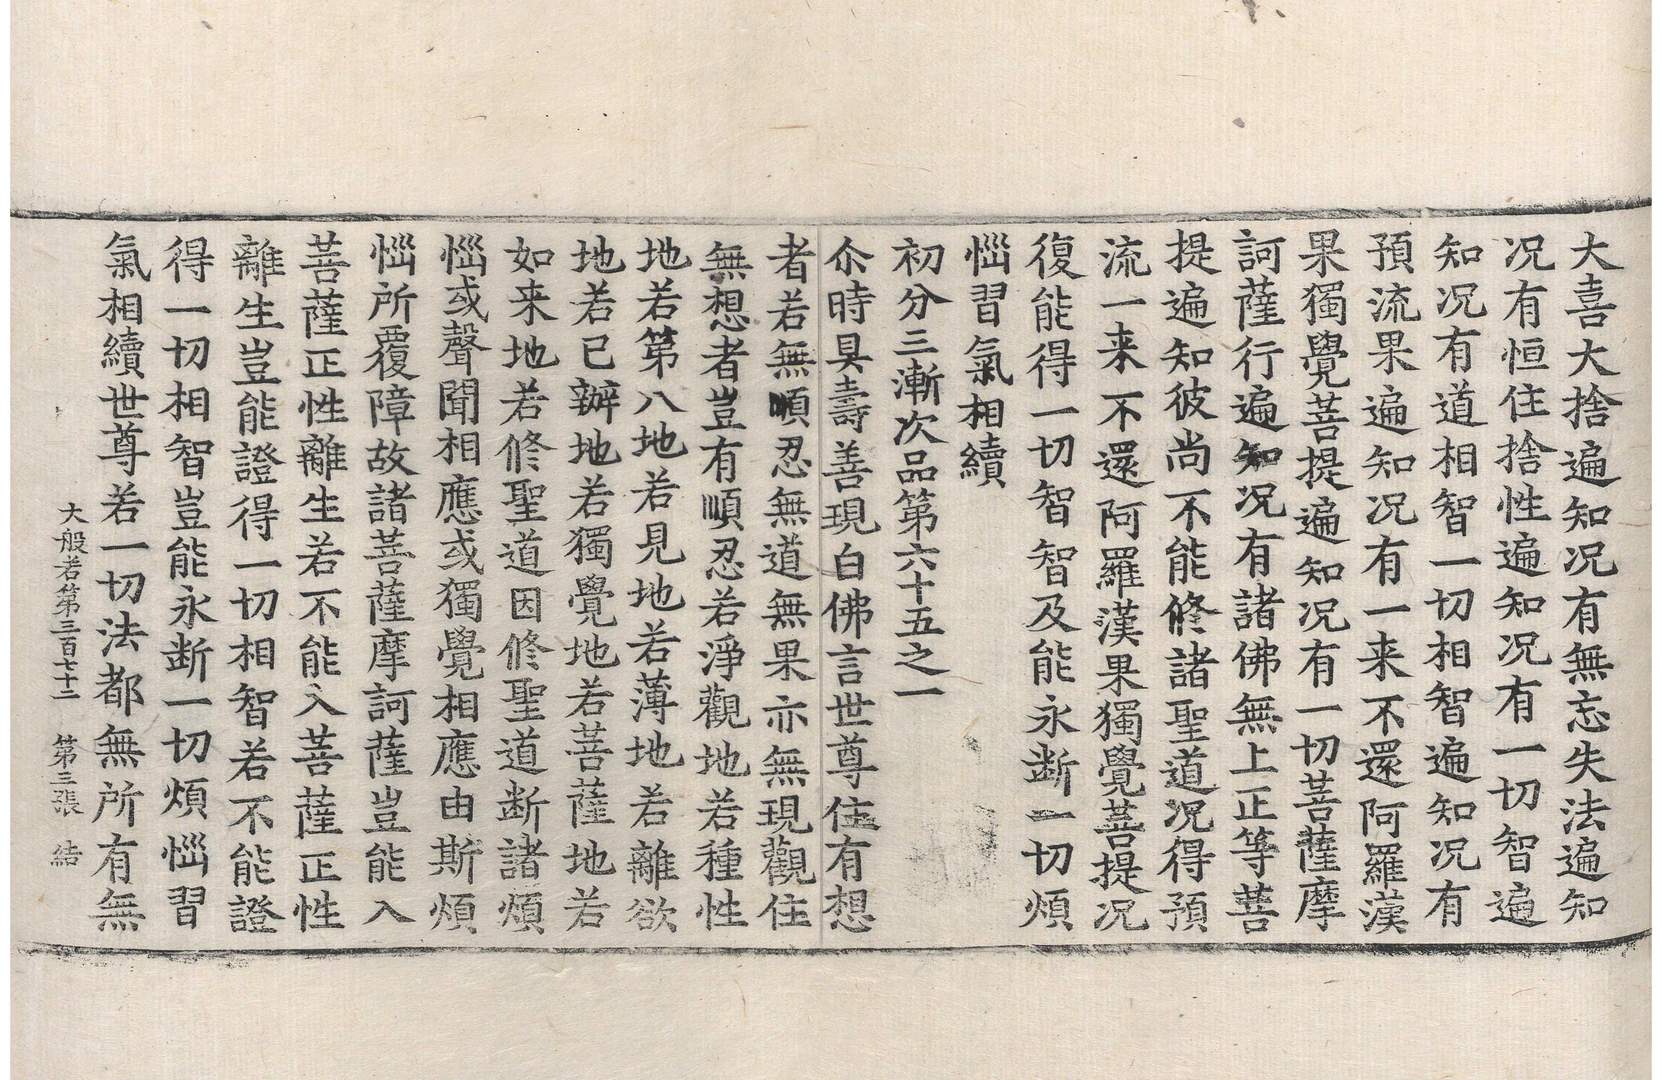 大喜大捨遍知况有無忘失法遍知
况有恒住捨性遍知况有一切智遍
知况有道相智一切相智遍知况有
預流果遍知况有一来不還阿羅漢
果獨覺菩提遍知况有一切菩薩摩
訶薩行遍知况有諸佛無上正等菩
提遍知彼尚不能修諸聖道况得預
流一来不還阿羅漢果獨覺菩提况
復能得一切智智及能永断一切煩
惱習氣相續
初分三漸次品第六十五之一
尒時具壽善現白佛言世尊住有想
者若無順忍無道無果亦無現觀住
無想者豈有順忍若淨觀地若種性
地若第八地若見地若薄地若離欲
地若已辦地若獨覺地若菩薩地若
如来地若修聖道因修聖道断諸煩
惱或聲聞相應或獨覺相應由斯煩
惱所覆障故諸菩薩摩訶薩豈能入
菩薩正性離生若不能入菩薩正性
離生豈能證得一切相智若不能證
得一切相智豈能永断一切煩惱習
氣相續世尊若一切法都無所有無
大般若第三百七十二　第三張　結